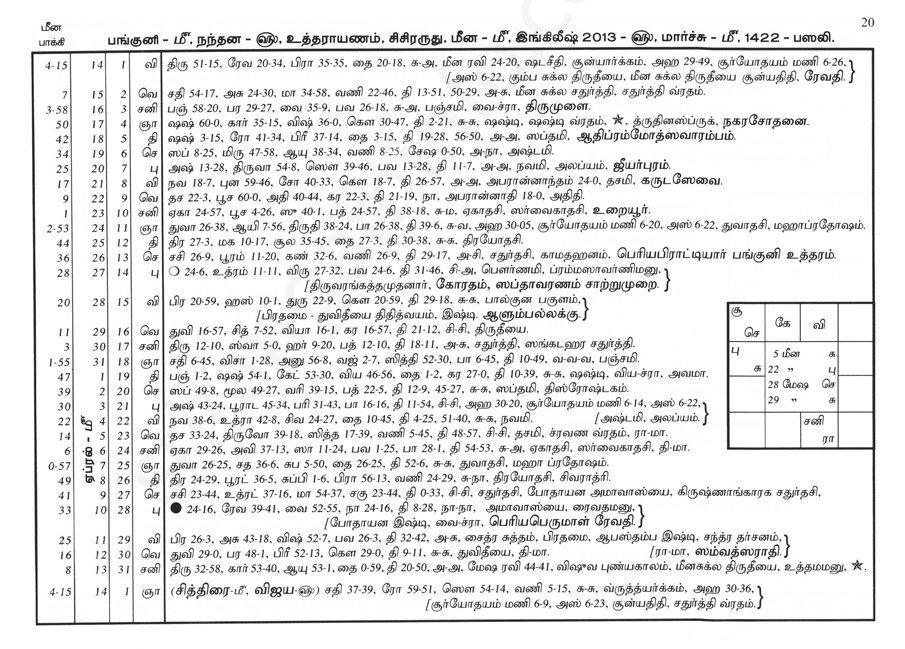 20
மீன
பாக்கி
பங்குனி - மீ, நந்தன - ௵, உத்தராயணம், சிசிரருது, மீன - மீ, இங்கிலீஷ் 2013 - ௵, மார்ச்சு - மீ, 1422 - பஸலி.
4-15 14 1 வி திரு 51-15, ரேவ 20-34, பிரா 35-35, தை 20-18, சு-அ, மீன ரவி 24-20, ஷடசீதி, சூன்யார்க்கம், அஹ 29-49, சூர்யோதயம் மணி 6-26,
[அஸ் 6-22, கும்ப சுக்ல திருதீயை, மீன சுக்ல திருதீயை சூன்யதிதி, ரேவதி.
7 15 2 வெ சதி 54-17, அசு 24-30, மா 34-58, வணி 22-46, தி 13-51, 50-29, அ-சு, மீன சுக்ல சதுர்த்தி, சதுர்த்தி வ்ரதம்.
3-58 16 3 சனி பஞ் 58-20, பர 29-27, வை 35-9, பவ 26-18, சு-அ, பஞ்சமி, வை-ச்ரா, திருமுளை.
50 17 4 ஞா ஷஷ் 60-0, கார் 35-15, விஷ் 36-0, கௌ 30-47, தி 2-21, சு-சு, ஷஷ்டி, ஷஷ்டி வ்ரதம், ★, த்ருதினஸ்ப்ருக், நகரசோதனை.
42 18 5 தி ஷஷ் 3-15, ரோ 41-34, பிரீ 37-14, தை 3-15, தி 19-28, 56-50, அ-அ, ஸப்தமி, ஆதிப்ரம்மோத்ஸவாரம்பம்.
34 19 6 செ ஸப் 8-25, மிரு 47-58, ஆயு 38-34, வணி 8-25, சேஷ 0-50, அ-நா, அஷ்டமி.
25 20 7 பு அஷ் 13-28, திருவா 54-8, ஸௌ 39-46, பவ 13-28, தி 11-7, அ-அ, நவமி, அலப்யம், ஜீயர்புரம்.
17 21 8 வி நவ 18-7, புன 59-46, சோ 40-33, கௌ 18-7, தி 26-57, அ-அ, அபரான்னாந்தம் 24-0, தசமி, கருடஸேவை.
9 22 9 வெ தச 22-3, பூச 60-0, அதி 40-44, கர 22-3, தி 21-19, நா, அபரான்னாதி 18-0, அதிதி.
1 23 10 சனி ஏகா 24-57, பூச 4-26, ஸு 40-1, பத் 24-57, தி 38-18, சு-ம, ஏகாதசி, ஸர்வைகாதசி, உறையூர்.
2-53 24 11 ஞா துவா 26-38, ஆயி 7-56, திருதி 38-24, பா 26-38, தி 39-6, சு-வ, அஹ 30-05, சூர்யோதயம் மணி 6-20, அஸ் 6-22, துவாதசி, மஹாப்ரதோஷம்.
44 25 12 தி திர 27-3, மக 10-17, சூல 35-45, தை 27-3, தி 30-38, சு-சு, திரயோதசி.
36 26 13 செ சசி 26-9, பூரம் 11-20, கண் 32-6, வணி 26-9, தி 29-17, அ-சி, சதுர்தசி, காமதஹனம், பெரியபிராட்டியார் பங்குனி உத்தரம்.
28 27 14 பு ○ 24-6, உத்ரம் 11-11, விரு 27-32, பவ 24-6, தி 31-46, சி-அ, பௌர்ணமி, ப்ரம்மஸாவர்ணிமனு,
[திருவரங்கத்தமுதனார், கோரதம், ஸப்தாவரணம் சாற்றுமுறை.
20 28 15 வி பிர 20-59, ஹஸ் 10-1, துரு 22-9, கௌ 20-59, தி 29-18, சு-சு, பால்குன பகுளம்,
[பிரதமை - துவிதீயை திதித்வயம், இஷ்டி. ஆளும்பல்லக்கு.
11 29 16 வெ துவி 16-57, சித் 7-52, வியா 16-1, கர 16-57, தி 21-12, சி-சி, திருதீயை.
3 30 17 சனி திரு 12-10, ஸ்வா 5-0, ஹர் 9-20, பத் 12-10, தி 18-11, அ-சு, சதுர்த்தி, ஸங்கடஹர சதுர்த்தி.
1-55 31 18 ஞா சதி 6-45, விசா 1-28, அனு 56-8, வஜ் 2-7, ஸித்தி 52-30, பா 6-45, தி 10-49, வ-வ-வ, பஞ்சமி.
47 1 19 தி பஞ் 1-2, ஷஷ் 54-1, கேட் 53-30, விய 46-56, தை 1-2, கர 27-0, தி 10-39, சு-சு, ஷஷ்டி, விய-ச்ரா, அவமா.
39 2 20 செ ஸப் 49-8, மூல 49-27, வரி 39-15, பத் 22-5, தி 12-9, 45-27, சு-சு, ஸப்தமி, திஸ்ரோஷ்டகம்.
30 3 21 பு அஷ் 43-24, பூராட 45-34, பரி 31-43, பா 16-16, தி 11-54, சி-சி, அஹ 30-20, சூர்யோதயம் மணி 6-14, அஸ் 6-22,
22 4 22 வி நவ 38-6, உத்ரா 42-8, சிவ 24-27, தை 10-45, தி 4-25, 51-40, சு-சு, நவமி. [அஷ்டமி, அலப்யம்.
14 5 23 வெ தச 33-24, திருவோ 39-18, ஸித்த 17-39, வணி 5-45, தி 48-57, சி-சி, தசமி, ச்ரவண வ்ரதம், ரா-மா.
6 6 24 சனி ஏகா 29-26, அவி 37-13, ஸா 11-24, பவ 1-25, பா 28-1, தி 54-53, சு-அ, ஏகாதசி, ஸர்வைகாதசி, தி-மா.
0-57 7 25 ஞா துவா 26-25, சத 36-6, சுப 5-50, தை 26-25, தி 52-6, சு-சு, துவாதசி, மஹா ப்ரதோஷம்.
49 8 26 தி திர 24-29, பூரட் 36-5, சுப்பி 1-6, பிரா 56-13, வணி 24-29, சு-நா, திரயோதசி, சிவராத்ரி.
41 9 27 செ சசி 23-44, உத்ரட் 37-16, மா 54-37, சகு 23-44, தி 0-33, சி-சி, சதுர்தசி, போதாயன அமாவாஸ்யை, கிருஷ்ணாங்காரக சதுர்தசி,
33 10 28 பு ● 24-16, ரேவ 39-41, வை 52-55, நா 24-16, தி 8-28, நா-நா, அமாவாஸ்யை, ரைவதமனு,
[போதாயன இஷ்டி, வை-ச்ரா, பெரியபெருமாள் ரேவதி.
25 11 29 வி பிர 26-3, அசு 43-18, விஷ் 52-7, பவ 26-3, தி 32-42, அ-சு, சைத்ர சுத்தம், பிரதமை, ஆபஸ்தம்ப இஷ்டி, சந்த்ர தர்சனம்,
16 12 30 வெ துவி 29-0, பர 48-1, பிரீ 52-13, கௌ 29-0, தி 9-11, சு-சு, துவிதீயை, தி-மா. [ரா-மா, ஸம்வத்ஸராதி.
8 13 31 சனி திரு 32-58, கார் 53-40, ஆயு 53-1, தை 0-59, தி 20-50, அ-அ, மேஷ ரவி 44-41, விஷுவ புண்யகாலம், மீனசுக்ல திருதீயை, உத்தமமனு, ★.
4-15 14 1 ஞா (சித்திரை-மீ, விஜய-௵) சதி 37-39, ரோ 59-51, ஸௌ 54-14, வணி 5-15, சு-சு, வ்ருத்த்யர்க்கம், அஹ 30-36,
[சூர்யோதயம் மணி 6-9, அஸ் 6-23, சூன்யதிதி, சதுர்த்தி வ்ரதம்.
ஏப்ரல் - மீ
சூ செ கே வி
பு சு
5 மீன சு
22 " பு
28 மேஷ செ
29 " சு
சனி ரா